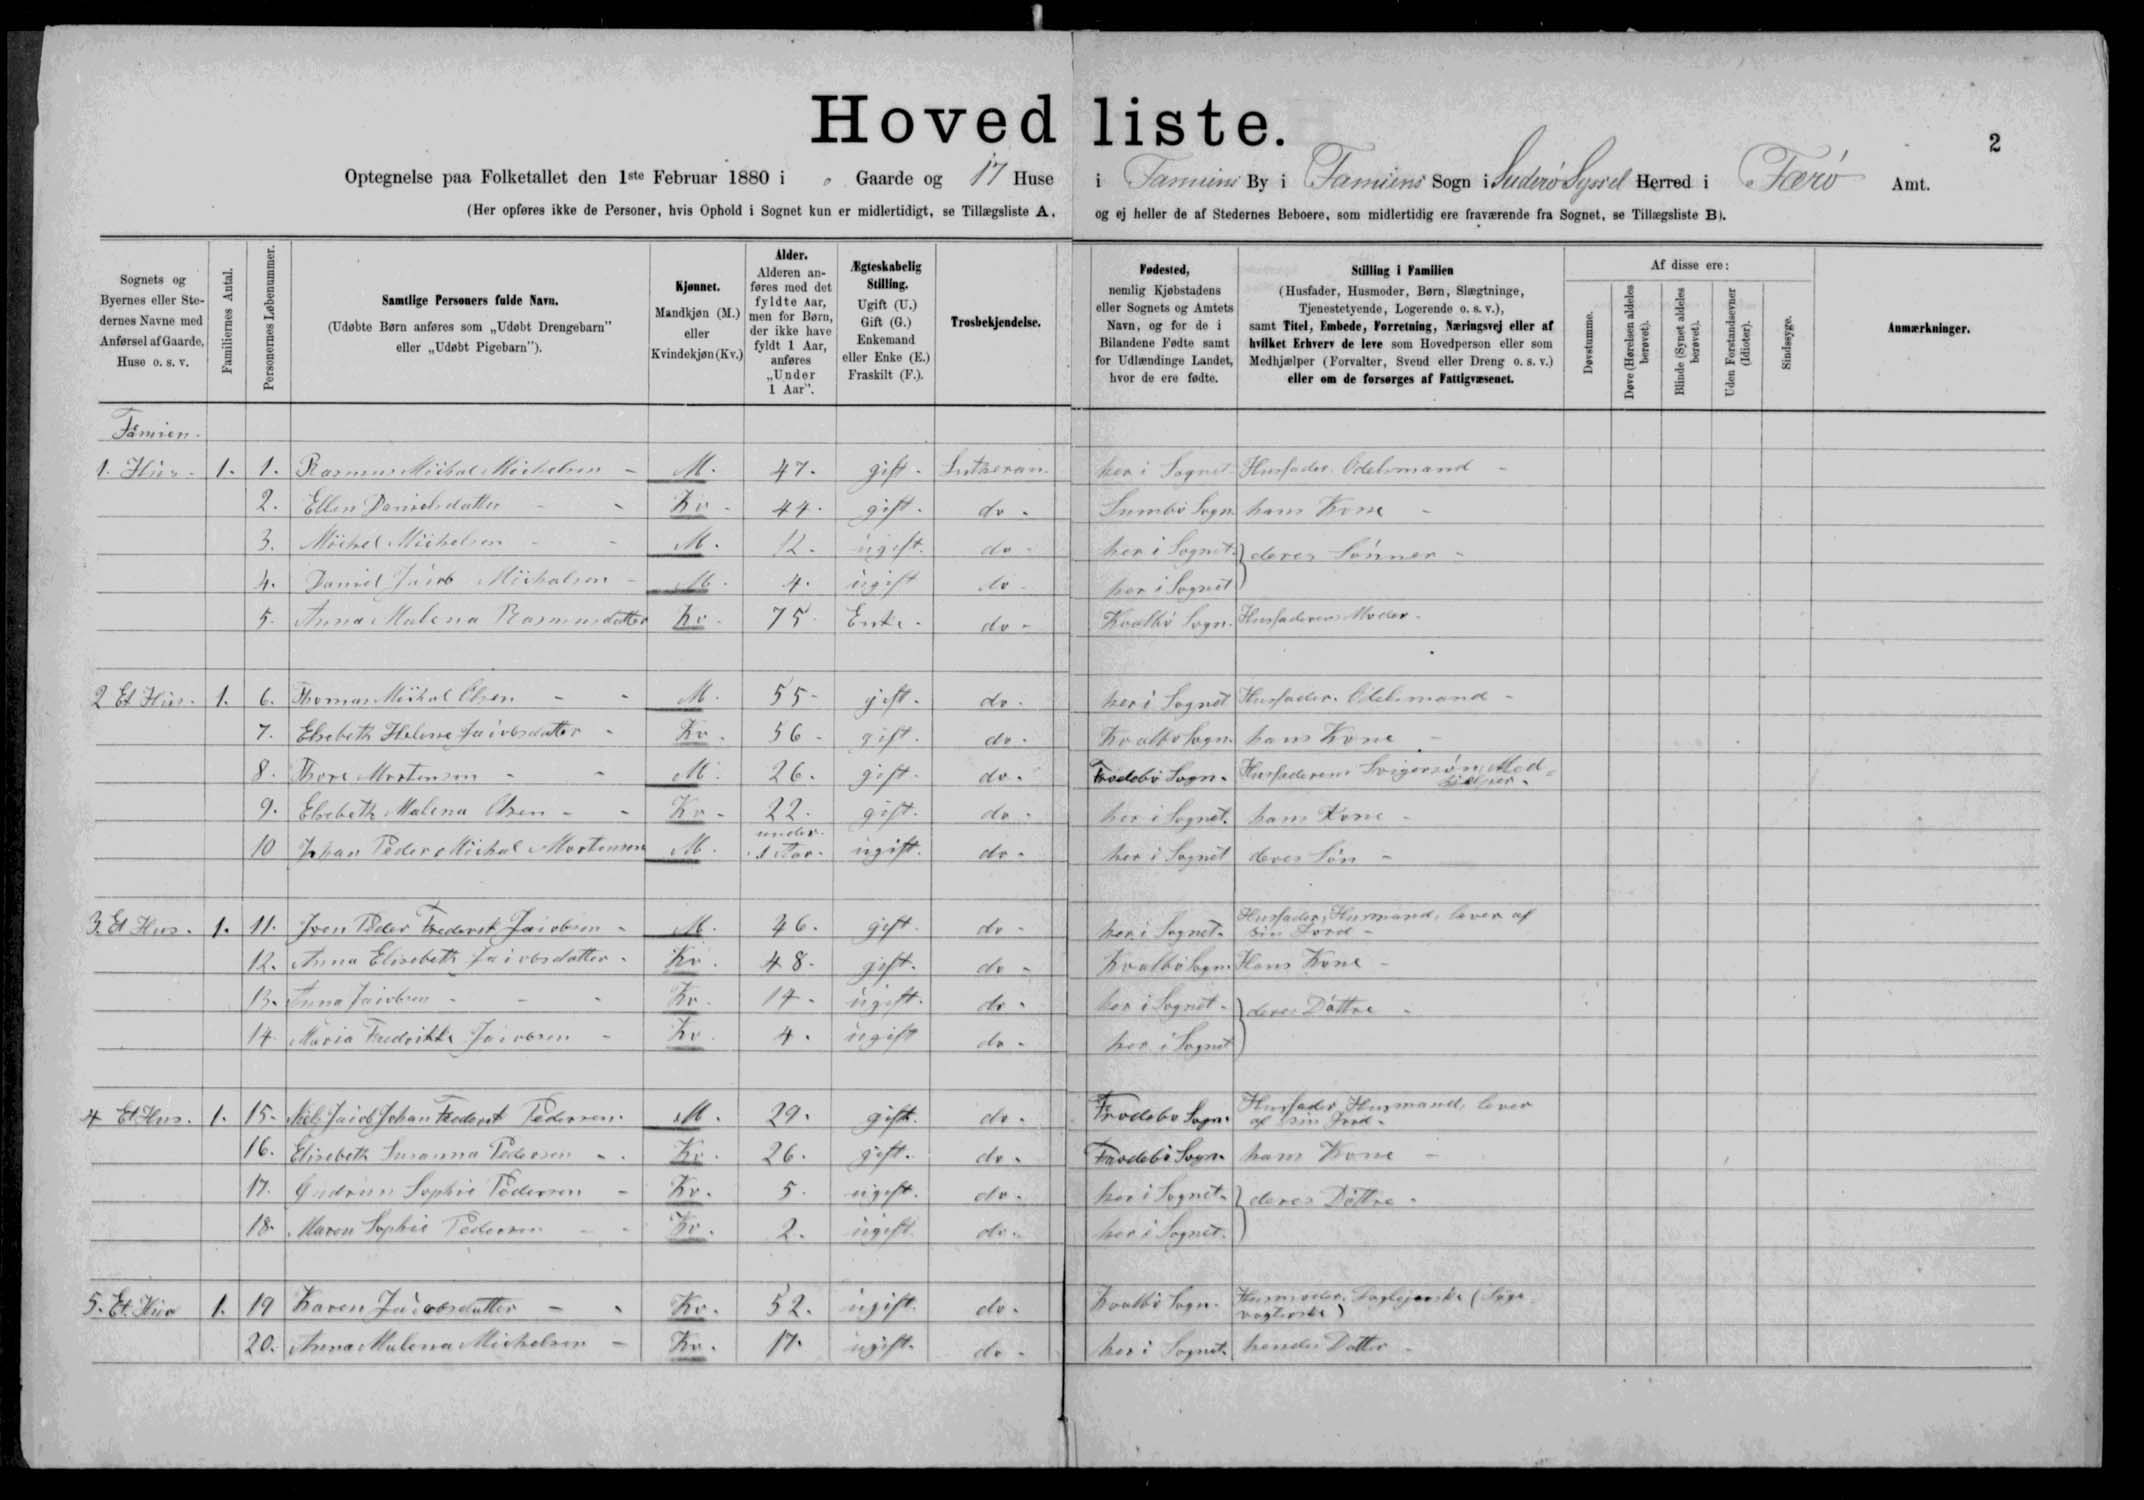 Hovedliste.
2
Optegnelse paa Folketallet den 1ste Februar 1880 i 0 Gaarde og 17 Huse i Famiens By i Famiens Sogn i Suderø Syssel Herred i Færø Amt.
(Her opføres ikke de Personer, hvis Ophold i Sognet kun er midlertidigt, se Tillægsliste A, og ej heller de af Stedernes Beboere, som midlertidig ere fraværende fra Sognet, se Tillægsliste B).
Sognets og Byernes eller Stedernes Navne med Anførsel af Gaarde, Huse o. s. v.
Familiernes Antal.
Personernes Løbenummer.
Samtlige Personers fulde Navn.
(Udøbte Børn anføres som „Udøbt Drengebarn" eller „Udøbt Pigebarn").
Kjønnet.
Mandkjøn (M.) eller Kvindekjøn (Kv.)
Alder.
Alderen anføres med det fyldte Aar, men for Børn, der ikke have fyldt 1 Aar, anføres „Under 1 Aar".
Ægteskabelig Stilling.
Ugift (U.) Gift (G.) Enkemand eller Enke (E.) Fraskilt (F.).
Trosbekjendelse.
Fødested,
nemlig Kjøbstadens eller Sognets og Amtets Navn, og for de i Bilandene Fødte samt for Udlændinge Landet, hvor de ere fødte.
Stilling i Familien
(Husfader, Husmoder, Børn, Slægtninge, Tjenestetyende, Logerende o. s. v.),
samt Titel, Embede, Forretning, Næringsvej eller af hvilket Erhverv de leve som Hovedperson eller som Medhjælper (Forvalter, Svend eller Dreng o. s. v.) eller om de forsørges af Fattigvæsenet.
Af disse ere:
Døvstumme.
Døve (Hørelsen aldeles berøvet).
Blinde (Synet aldeles berøvet).
Uden Forstandsevner (Idioter).
Sindssyge.
Anmærkninger.
Famien.
1. Hus. 1. 1. Rasmus Michal Michelsen - M. 47. gift. Lutheran. her i Sognet Husfader. Odelsmand -
2. Ellen Danielsdatter - - Kv. 44. gift. do. Sumbø Sogn. hans Kone -
3. Michel Michelsen - - M. 12. ugift. do. her i Sognet. } deres Sønner -
4. Daniel Jacob Michelsen - M. 4. ugift do. her i Sognet
5. Anna Malena Rasmusdatter Kv. 75. Enke. do. Kvalbø Sogn. Husfaderens Moder.
2 Et Hus. 1. 6. Thomas Michal Olsen - - M. 55 - gift. do. her i Sognet Husfader. Odelsmand -
7. Elsebeth Helene Jacobsdatter - Kv. 56 - gift. do. Kvalbø Sogn. hans Kone -
8. Thore Mortensen - - M. 26. gift. do. Frodebø Sogn. Husfaderens Svigersøn, Med-
hjelper -
9. Elsebeth Malena Olsen - - Kv. 22. gift. do. her i Sognet. hans Kone -
10 Johan Peder Michal Mortensen M. under 1 Aar. ugift. do. her i Sognet deres Søn -
3. Et Hus. 1. 11. Joen Peder Frederik Jacobsen - M. 46. gift. do. her i Sognet. Husfader, Husmand, lever af
sin Jord -
12. Anna Elisebeth Jacobsdatter - Kv. 48. gift. do - Kvalbø Sogn. Hans Kone -
13. Anna Jacobsen - - - Kv. 14. ugift. do. her i Sognet. } deres Døttre -
14. Maria Fredrikke Jacobsen - Kv. 4. ugift do. her i Sognet
4 Et Hus. 1. 15. Niels Jacob Johan Frederik Pedersen. M. 29. gift. do. Frodebø Sogn. Husfader, Husmand, lever
af sin Jord -
16. Elisebeth Susanna Pedersen - Kv. 26. gift. do. Frodebø Sogn. hans Kone -
17. Gudrun Sophie Pedersen - Kv. 5. ugift. do. her i Sognet. } deres Døttre -
18. Maren Sophie Pedersen - - Kv. 2. ugift. do. her i Sognet.
5. Et Hus 1. 19 Karen Jacobsdatter - - Kv. 52. ugift. do. Kvalbø Sogn. Husmoder. Daglejerske (Syge-
vogterske)
20. Anna Malena Michelsen - Kv. 17. ugift. do - her i Sognet. hendes Datter -